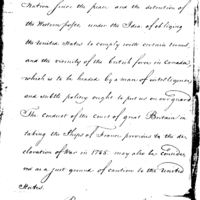 Nation since the peace and the detention of
the Western posts, under the Idea of obliging
the United States to comply with certain terms,
and the vicinity of the british force in Canada,
which is to be headed by a man of intelligence
and subtle policy ought to put us on our guard
The conduct of the court of great Britain in
taking the Ships of France previous to the de-
claration of War in 1755. may also be consider-
ed as a just ground of caution to the United
States.